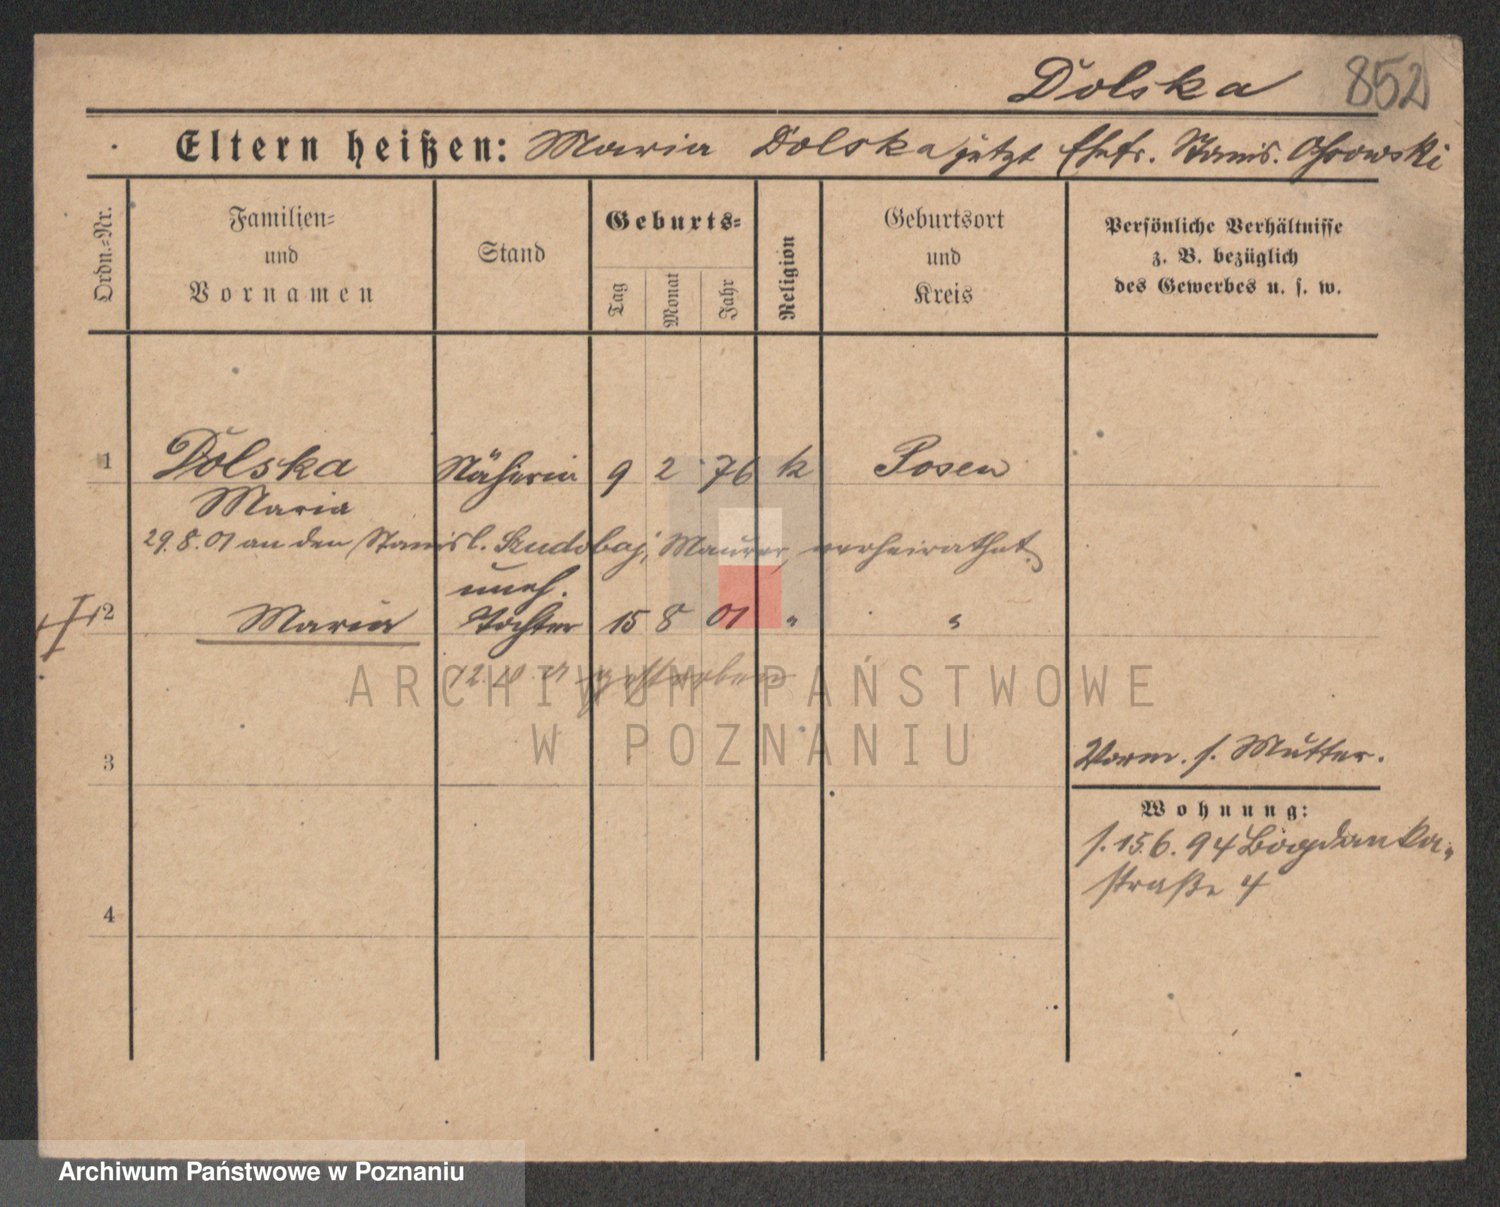 Dolska 852
Eltern heißen: Maria Dolska jetzt Ehefr. Stanis.
Ordn.-Nr.
Familien-
und
Vornamen
Stand
Geburts-
Tag
Monat
Jahr
Religion
Geburtsort
und
Kreis
Persönliche Verhältnisse
z. B. bezüglich
des Gewerbes u. s. w.
1 Dolska Näherin 9 2 76 k Posen
Maria
29.8.01 an den Stanisl. Maurer, verheirathet.
uneh.
2 Maria Tochter 15 8 01 " "
gestorben
ARCHIWUM PAŃSTWOWE
W POZNANIU
3
Vorm. s. Mutter.
Wohnung:
s. 15.6.94 Bogdanka-
straße 4
4
Archiwum Państwowe w Poznaniu